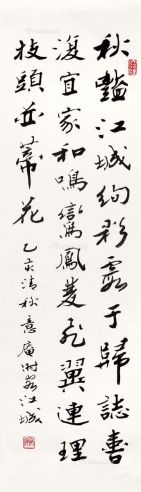 秋豔江城絢彩霞于歸誌喜
復宜家和鳴鸞鳳雙飛翼連理
枝頭並蒂花 乙亥清秋意庵時客江城